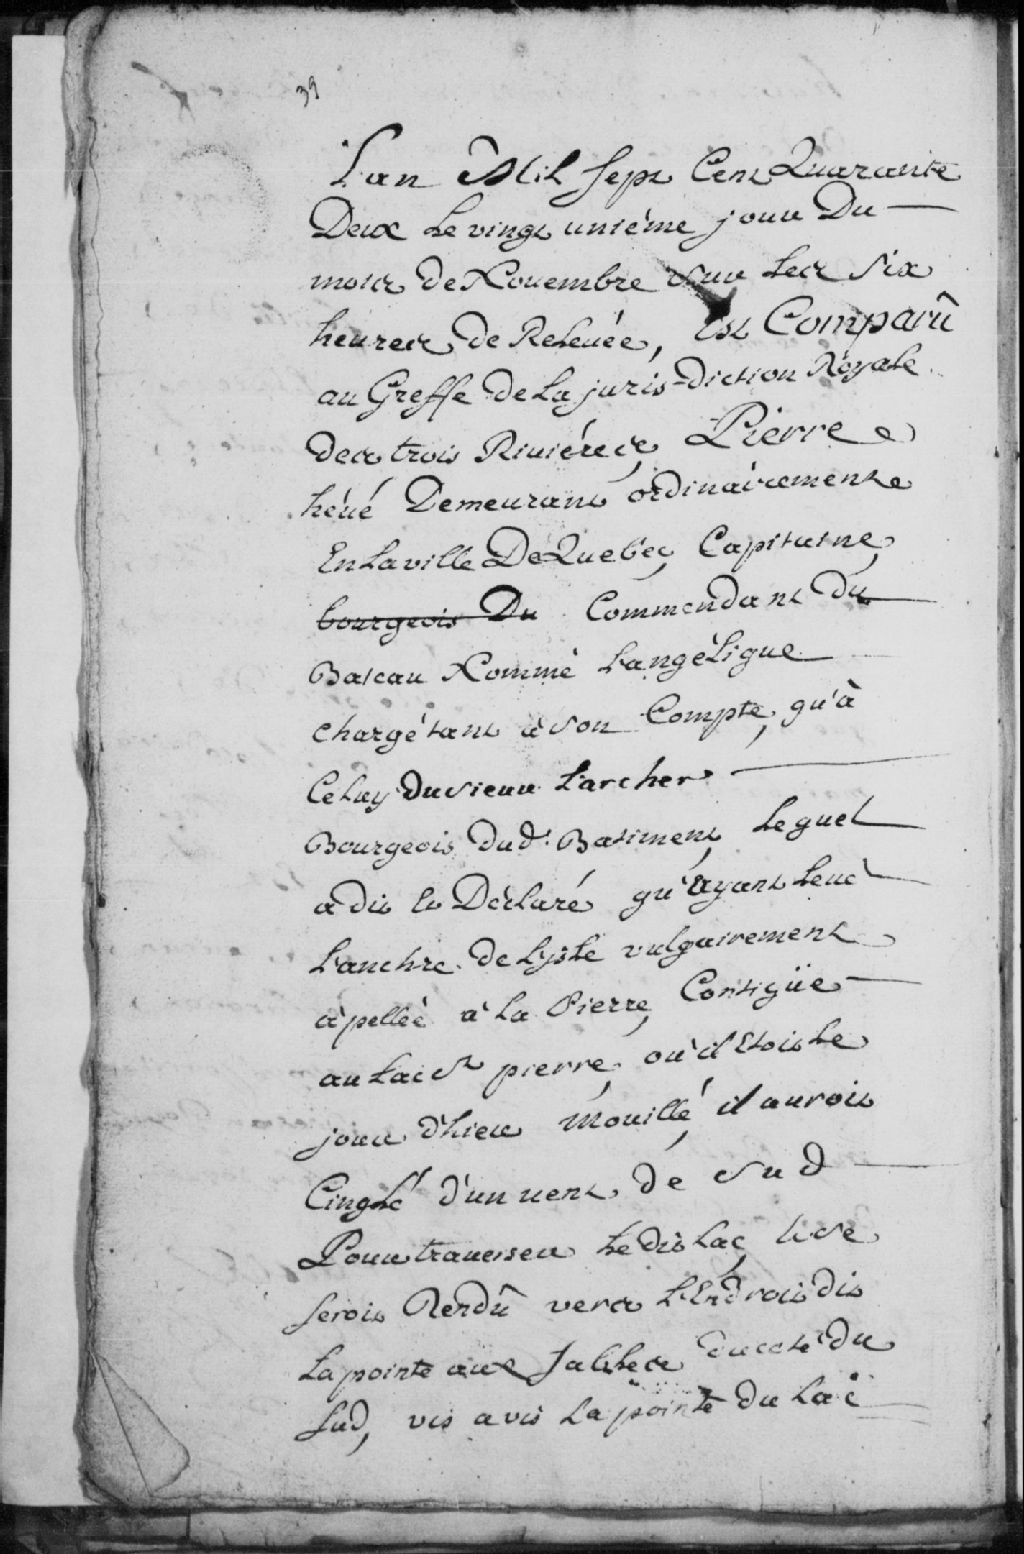 39
L'an Mil sept Cent Quarante
Deux Le vingt uniéme jour Du
mois De Novembre Sur Les Six
heures De Relevée, Est Comparû
au Greffe De La juris-Diction Royale
Des trois Riviéres, Pierre
hévé Demeurant ordinairement
En La ville De Quebec, Capitaine,
bourgeois Du Commendant Du
Bateau Nommé L'angéLique
chargé tant à Son Compte, qu'à
CeLuy Du Sieur Larcher
Bourgeois Dud. Batiment, Lequel
a dit Et Déclaré qu'ayant Levé
L'anchre De L'jsle vulgairement
àpellée à La Pierre, Contigüe
au Lac St pierre, où il Etoit Le
jour d'hier mouillé, il auroit
CingLé d'un vent De Sud
Pour traverser Le dit Lac, Et Se
Seroit Rendû vers L'Endroit dit
La pointe aux Sables du coté du
Sud, vis a vis La pointe Du Lac